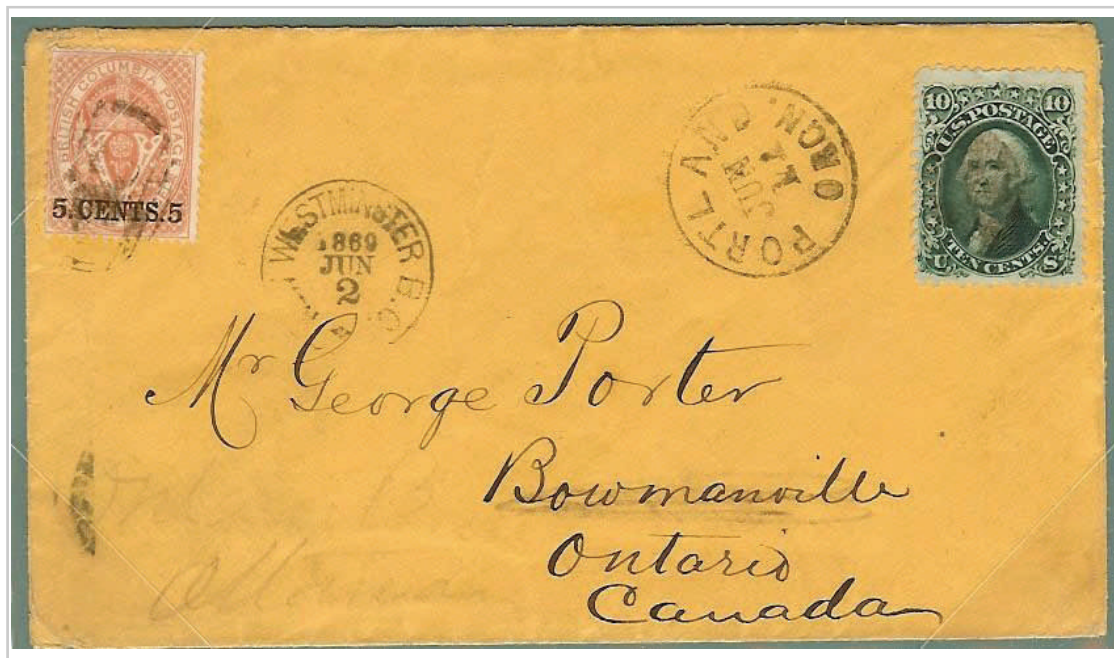 BRITISH COLUMBIA POSTAGE
5.CENTS.5
WESTMINSTER B.C.
1869
JUN
2
PORTLAND
JUN
10 10
U.S. POSTAGE
TEN CENTS.
U S
Mr George Porter
Bowmanville
Ontario
Canada